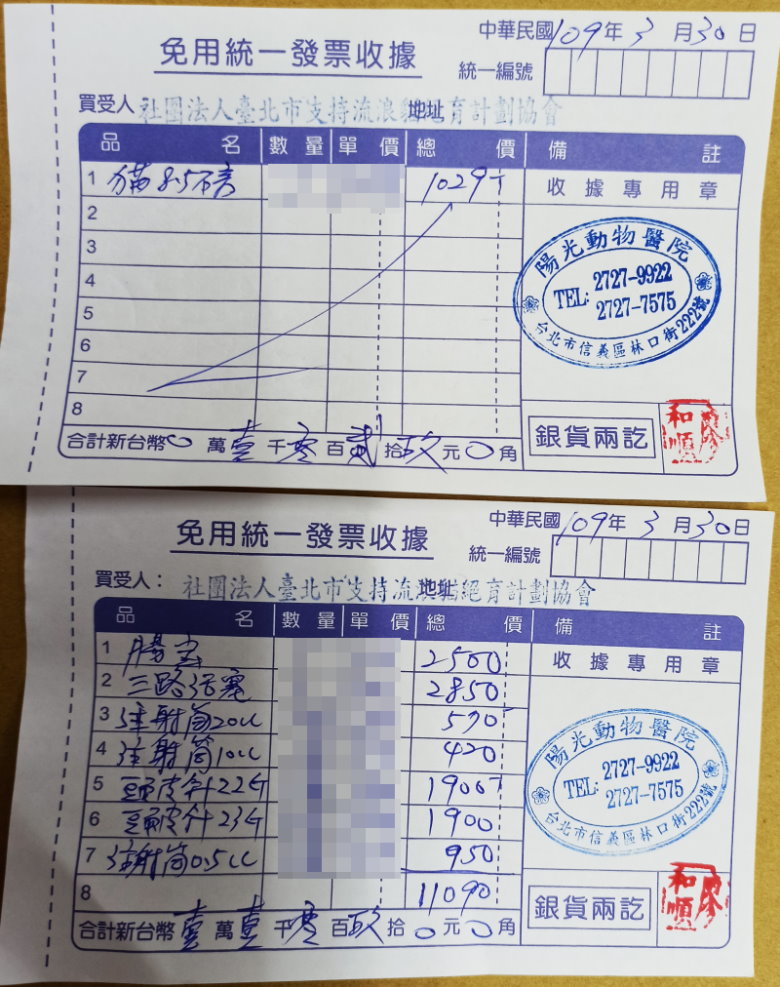 中華民國109年3月30日
免用統一發票收據
統一編號
買受人 社團法人臺北市支持流浪貓絕育計劃協會 地址
品名 數量 單價 總價 備註
1 貓 1029 收據專用章
2
3
4
5
6
7
8
陽光動物醫院
TEL: 2727-9922
2727-7575
台北市信義區林口街222號
合計新台幣0萬壹千零百貳拾玖元0角
銀貨兩訖
廖和順
中華民國109年3月30日
免用統一發票收據
統一編號
買受人: 社團法人臺北市支持流浪貓絕育計劃協會 地址
品名 數量 單價 總價 備註
1 2500 收據專用章
2 三路活塞 2850
3 注射筒20cc 570
4 注射筒10cc 420
5 頭皮針22G 1900
6 頭皮針23G 1900
7 注射筒0.5cc 950
8 11090
陽光動物醫院
TEL: 2727-9922
2727-7575
台北市信義區林口街222號
合計新台幣壹萬壹千零百玖拾0元0角
銀貨兩訖
廖和順